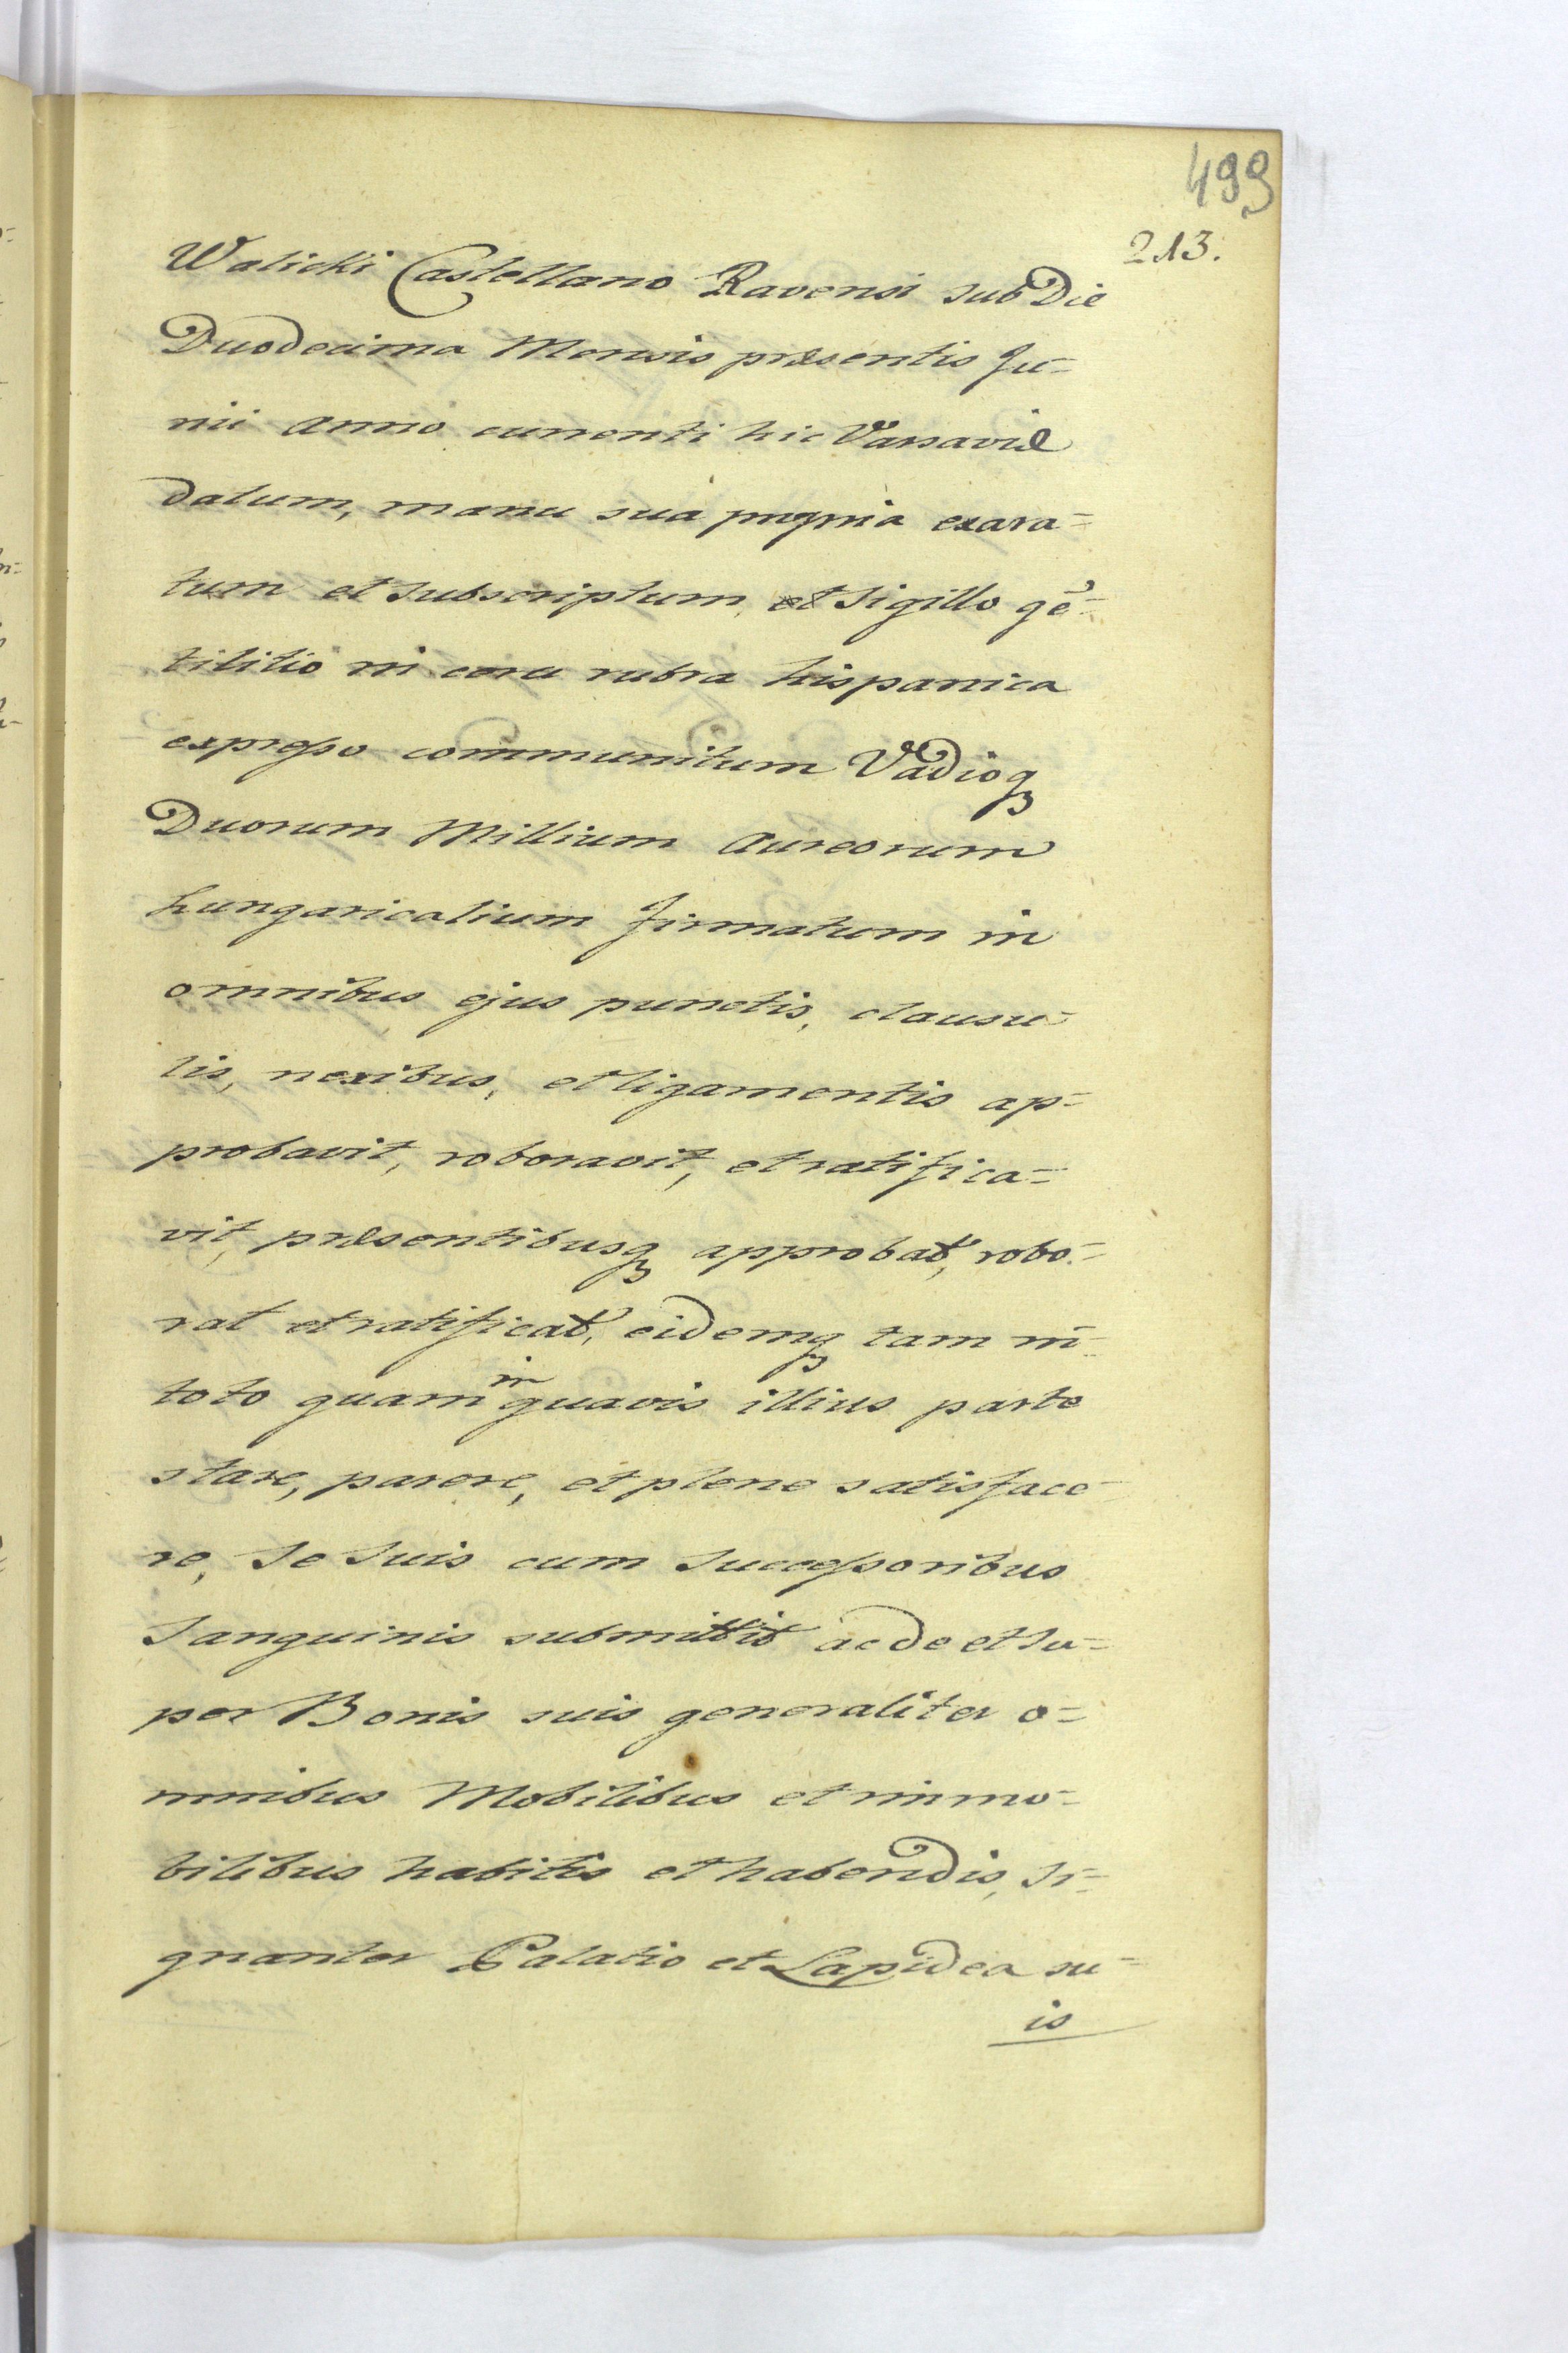 499
213.
Walicki Castellano Ravensi sub Die
Duodecima Mensis præsentis Ju=
nii anno currenti hic Varsaviæ
datum, manu sua propria exara=
tum et subscriptum, et sigillo gē=
tilitio in cera rubra hispanica
expresso communitum Vadioqꝫ
Duorum Millium aureorum
hungaricalium firmatum in
omnibus ejus punctis, clausu=
lis, nexibus, et ligamentis ap=
probavit, roboravit, et ratifica=
vit, præsentibusqꝫ approbat, robo=
rat et ratificat, eidemqꝫ tam in
toto quam in quavis illius parte
stare, parere, et plene satisface=
re, se suis cum successoribus
sanguinis submittit ac de et su=
per Bonis suis generaliter o=
mnibus Mobilibus et immo=
bilibus habitis et habendis, si=
gnanter Palatio et Lapidea su=
is